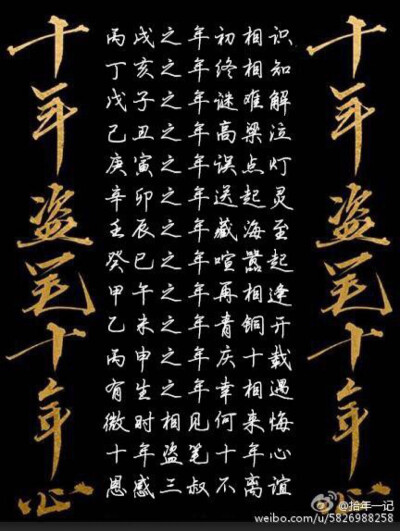 十年盗笔十年心
丙戌之年初相识
丁亥之年终相知
戊子之年谜难解
己丑之年高梁泣
庚寅之年误点灯
辛卯之年送起灵
壬辰之年藏海至
癸巳之年喧嚣起
甲午之年再相逢
乙未之年青铜开
丙申之年庆十载
有生之年幸相遇
微时相见何来悔
十年盗笔十年心
恩感三叔不离谊
十年盗笔十年心
@拾年一记
weibo.com/u/5826988258